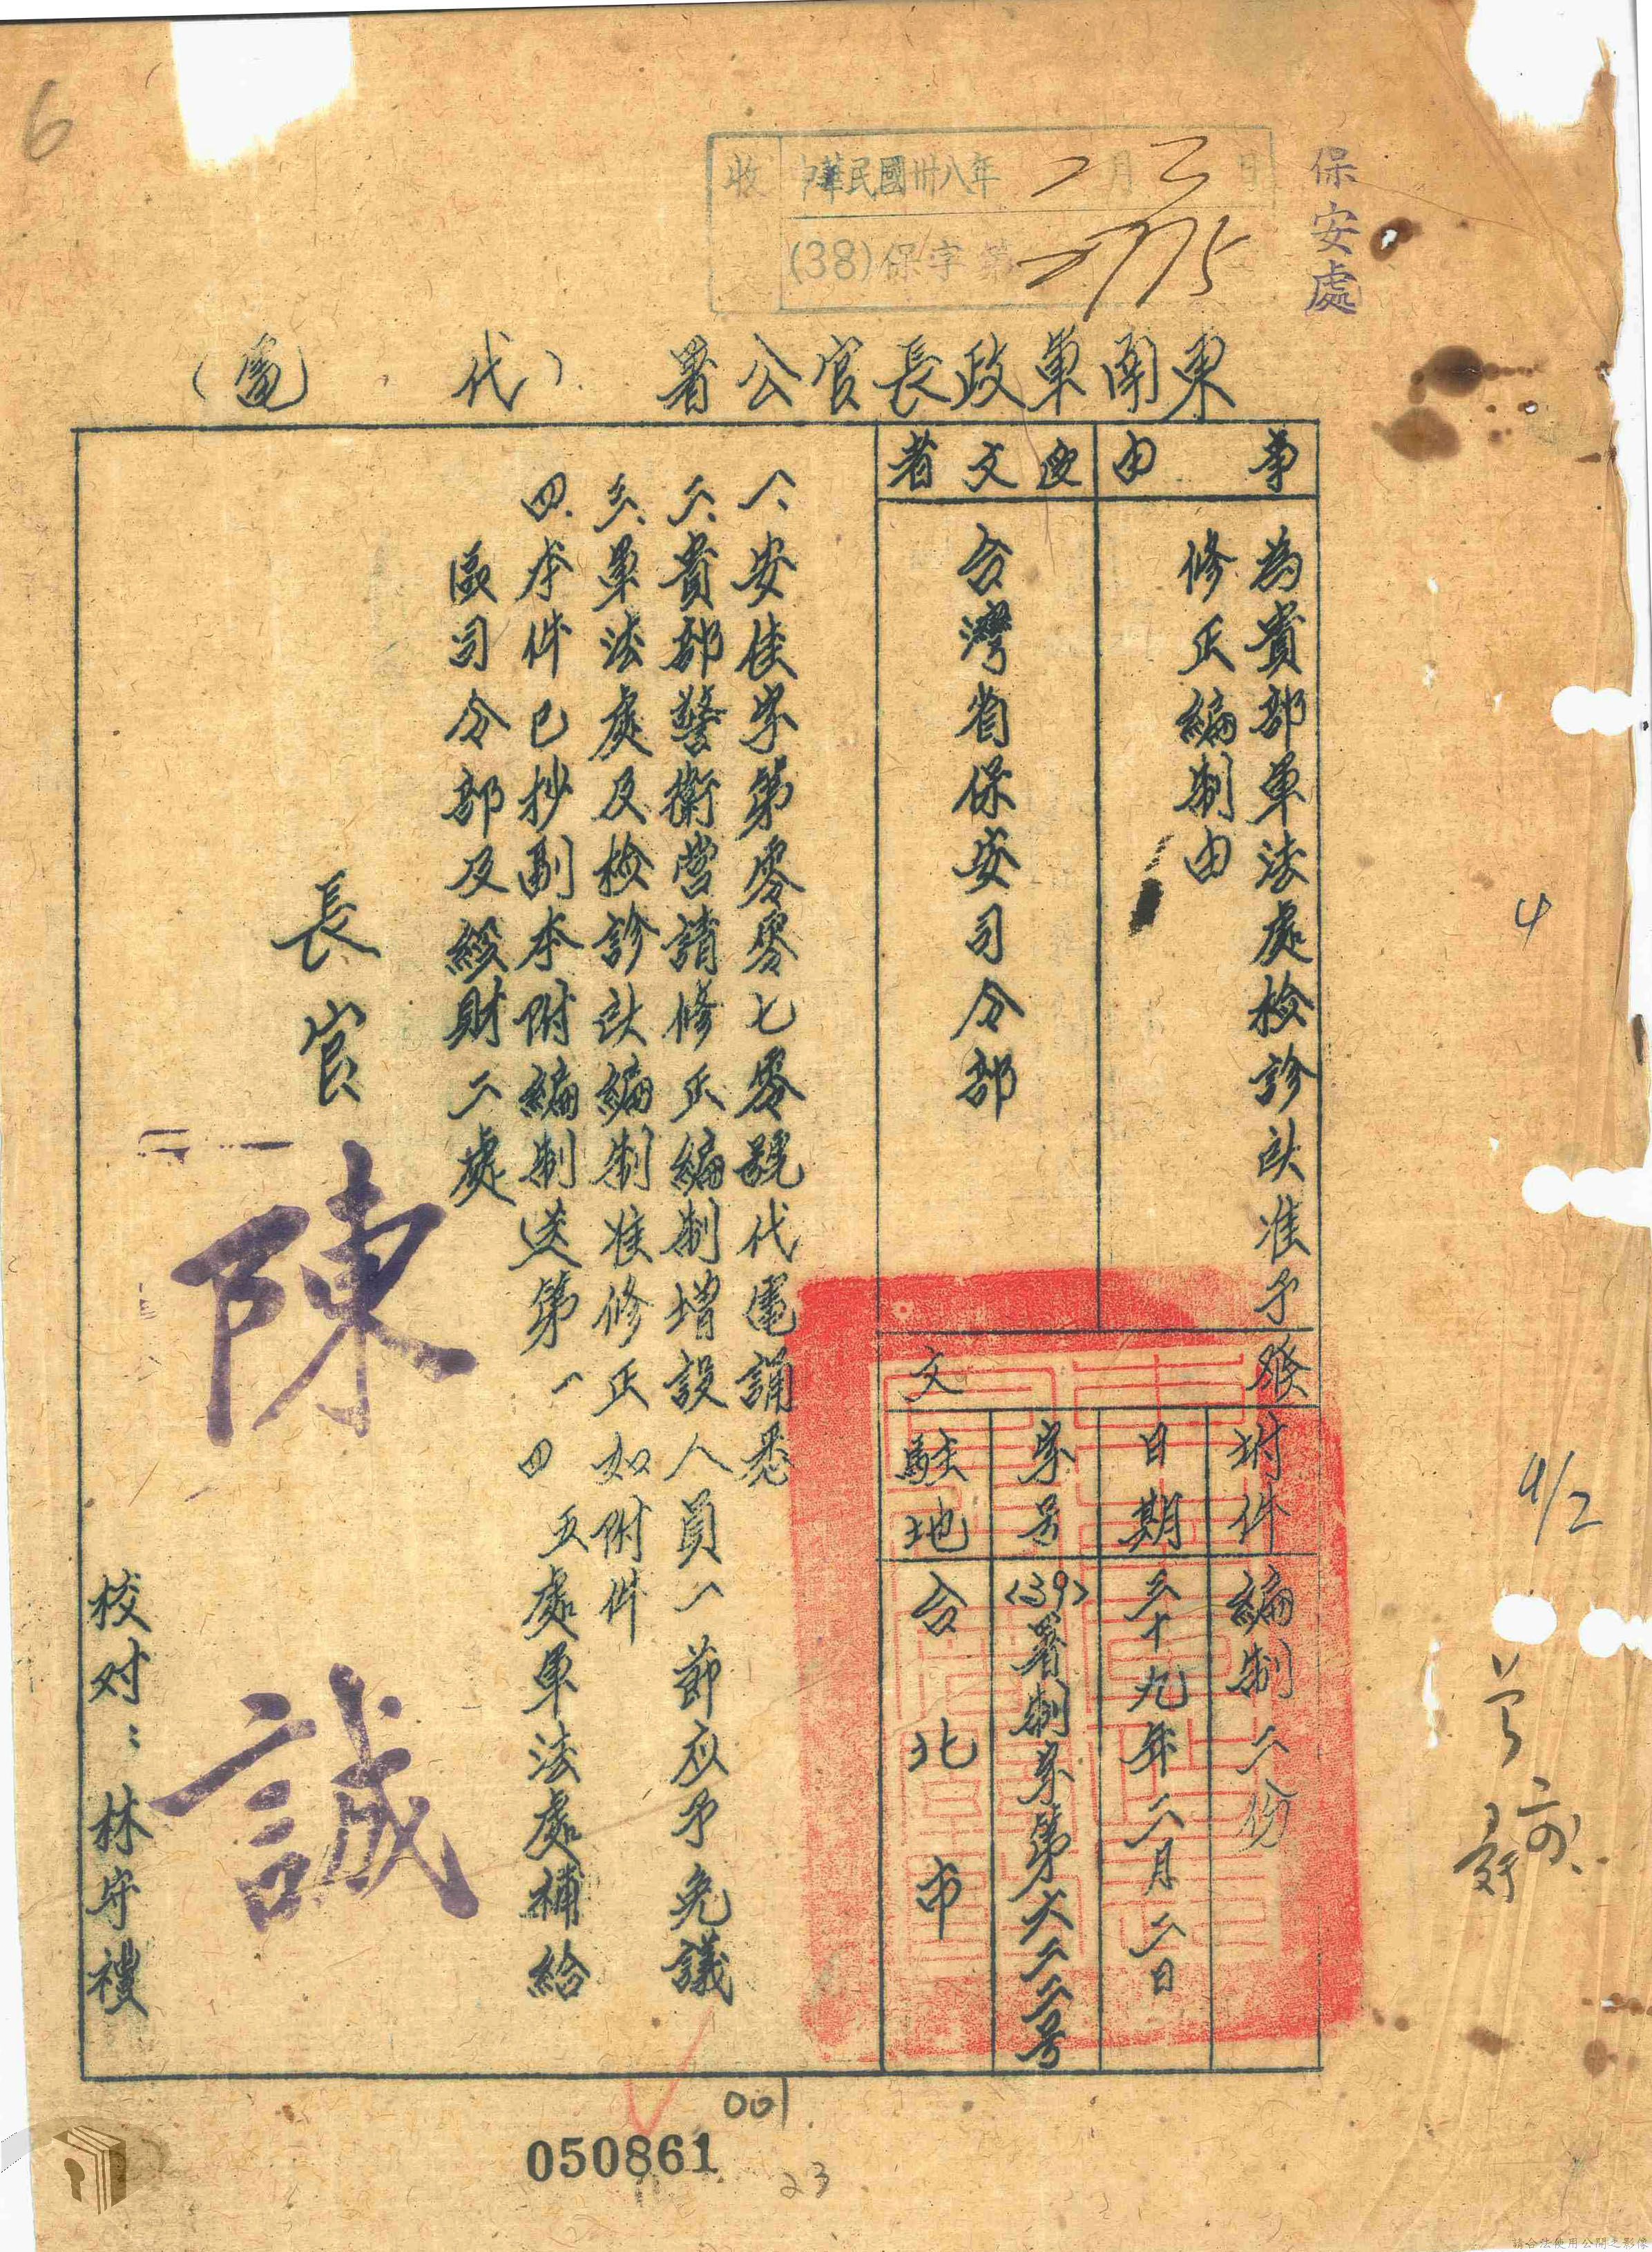 6
保安處
收 中華民國卅八年 二月三日
(38)保字第
東南軍政長官公署(代電)
事由
為貴部軍法處檢診所准予
修正編制由
受文者
台灣省保安司令部
發文
附件
編制二份
日期
三十九年二月二日
字号
(39)署制字第六二二号
駐地
台北市
一、安佳字第零零七零號代電誦悉
二、貴部警衛營請修正編制增設人員一節应予免議
三、軍法處及檢診所編制准修正如附件
四、本件已抄副本附編制送第一四五處軍法處補給
區司令部及經財二處
長官
陳誠
校对:林守禮
4
4/2
001
050861
23
請合法使用公開之影像